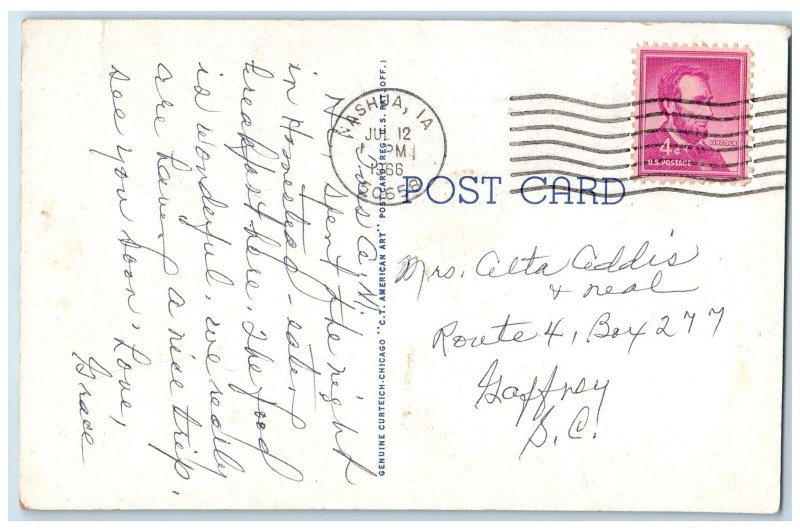 Tues A.M.
Hi, spent the night
in Homestead - eating
breakfast here. The food
is wonderful. we really
are having a nice trip.
see you soon. Love,
Grace
GENUINE CURTEICH-CHICAGO "C.T. AMERICAN ART" POST CARD (REG. U.S. PAT. OFF.)
NASHUA, IA
JUL 12
PM
1966
50658
LINCOLN
4¢
U.S. POSTAGE
POST CARD
Mrs. Alta Addis
& Neal
Route 4, Box 277
Gaffney
S.C.